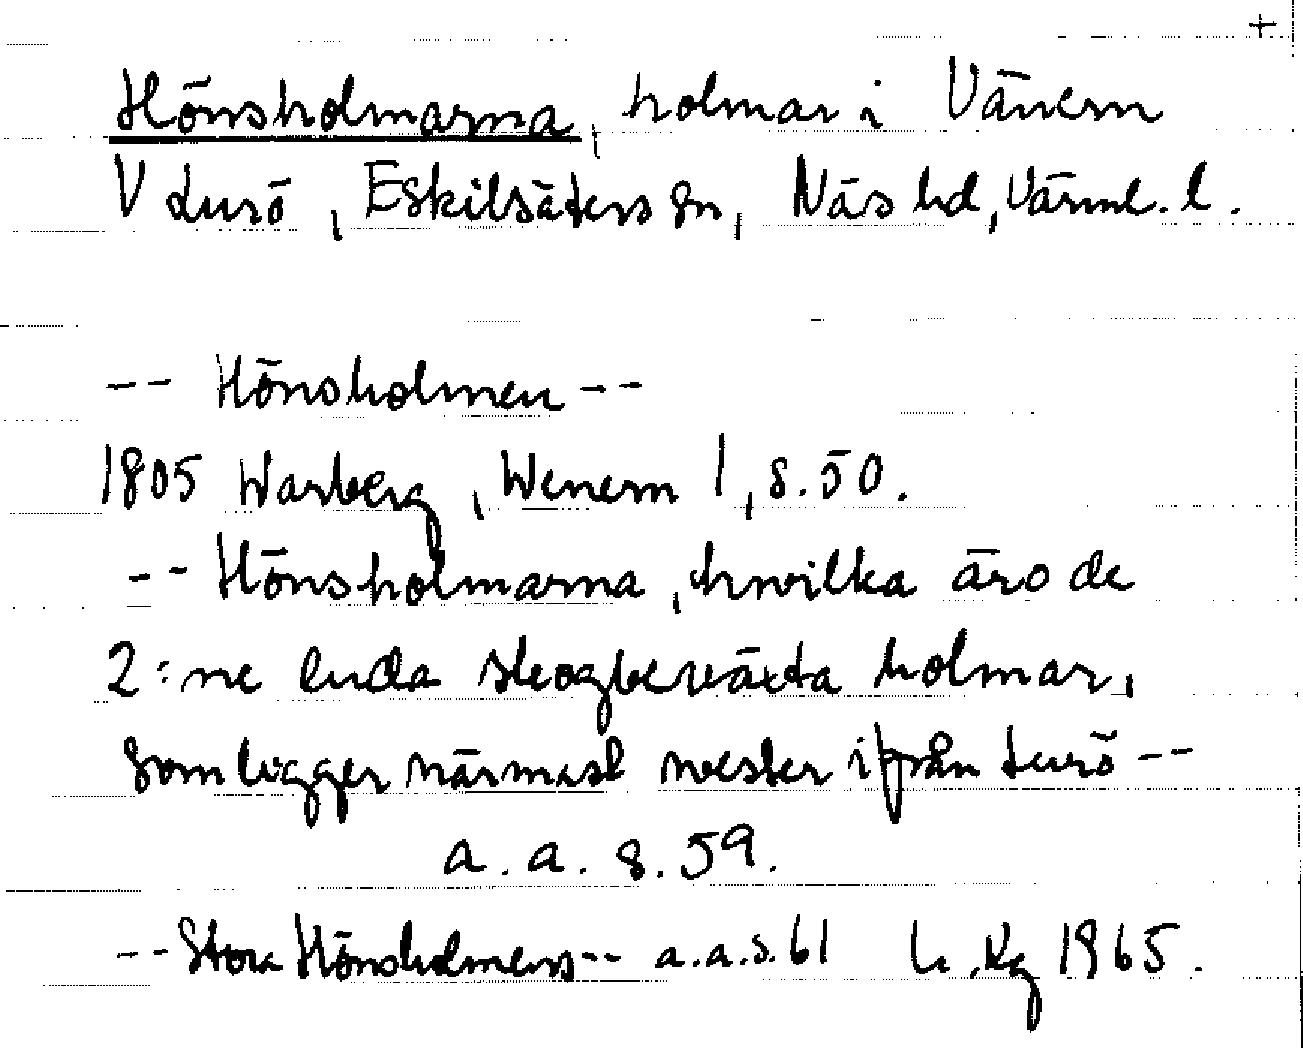 +
Hönsholmarna, holmar i Vänern
V Lurö, Eskilsäters sn, Näs hd, Värml. l.
-- Hönsholmen --
1805 Warberg, Wenern 1, s. 50.
-- Hönsholmarna, hwilka äro de
2:ne luda skogbeväxta holmar,
som ligger närmast wester ifrån Lurö --
a. a. s. 59.
-- Stora Hönsholmens -- a. a. s. 61 1965.